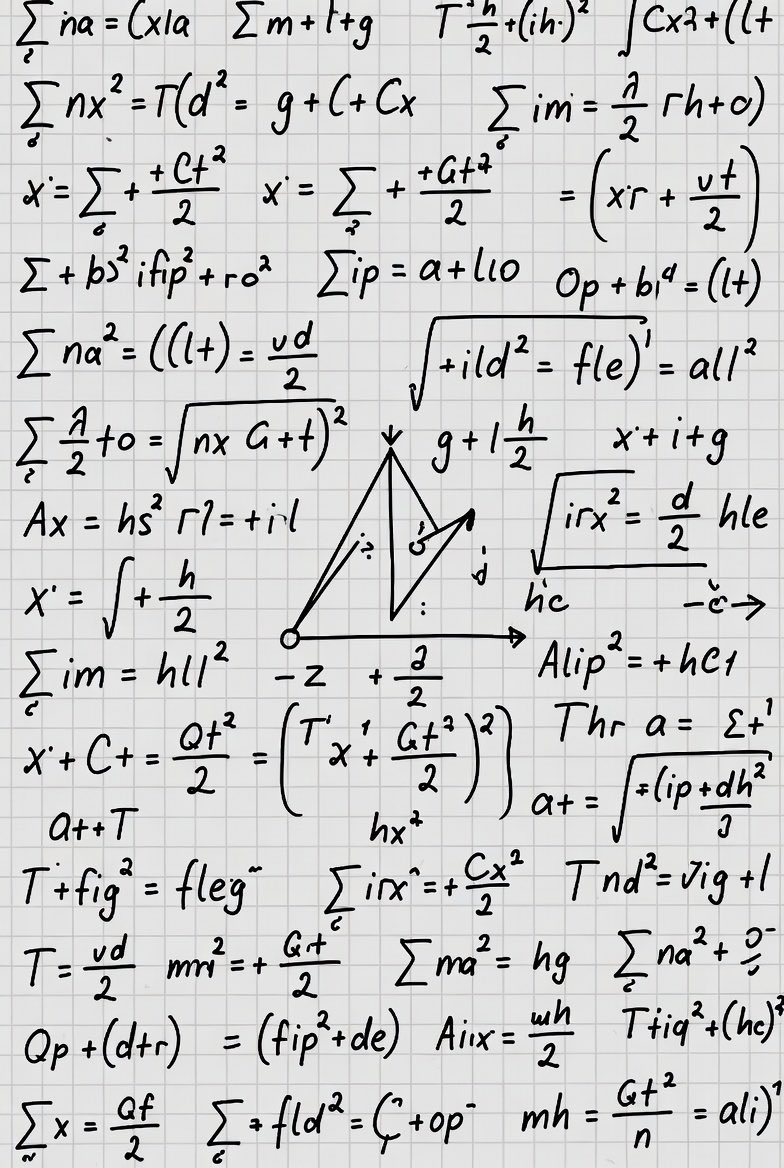 ∑ na = (x1a ∑ m + t + g T h/2 + (ih·)² ∫ Cx2 + ((t +
∑ nx² = T(d² = g + C + Cx ∑ im = λ/2 rh + o)
x· = ∑ + +Ct²/2 x· = ∑ + +Gt²/2 = (x·r + vt/2)
∑ + bs² ifip² + ro² ∑ip = a + llo Op + bi^q = (lt)
∑ na² = ((lt) = vd/2 √+ild² = fle)¹ = all²
∑ λ/2 to = √nx G + t)² g + l h/2 x· + i + g
Ax = hs² r? = +il √irx² = d/2 hle
x· = ∫ + h/2 hc
∑ im = hll² - z + 2/2 Alip² = + hC1
x· + C + = Qt²/2 = (T' x' + Gt²/2)²) Thr a = Σ+¹
a++T hx² a+ = √=(ip + dh²/3
T + fig² = fleg ∑ irx^ = + Cx²/2 T nd² = Jig + l
T = vd/2 mri² = + Grt/2 ∑ ma² = hg ∑ na² +
Qp + (d+r) = (fip² + de) Aiix = wh/2 T+iq² + (hc)²
∑ x = Qf/2 ∑ fld² = ( + op⁻ mh = Gt²/n = ali)¹